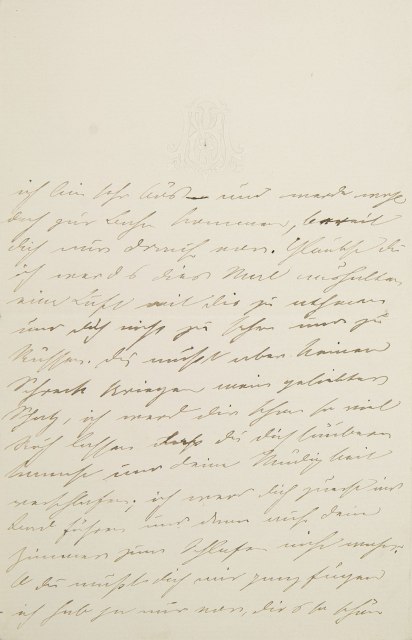 ich bin sehr bös – und werde
doch zur Bahn kommen, bereit
dich nur drauf vor. Glaubst du
ich werde dies Mal aushalten
eine Luft mit dir zu athmen
und dich nicht zu sehen und zu
küssen. Du mußt aber keinen
Schreck kriegen mein geliebter
Schatz, ich werd dir schon so viel
Ruh lassen daß du dich säubern
kannst und deine Müdigkeit
verschlafen, ich werd dich zuerst ins
Bad führen und dann auf dein
Zimmer zum Schlafen nicht wahr.
O du mußt dich mir ganz fügen
ich hab ja nur vor, dir so schön